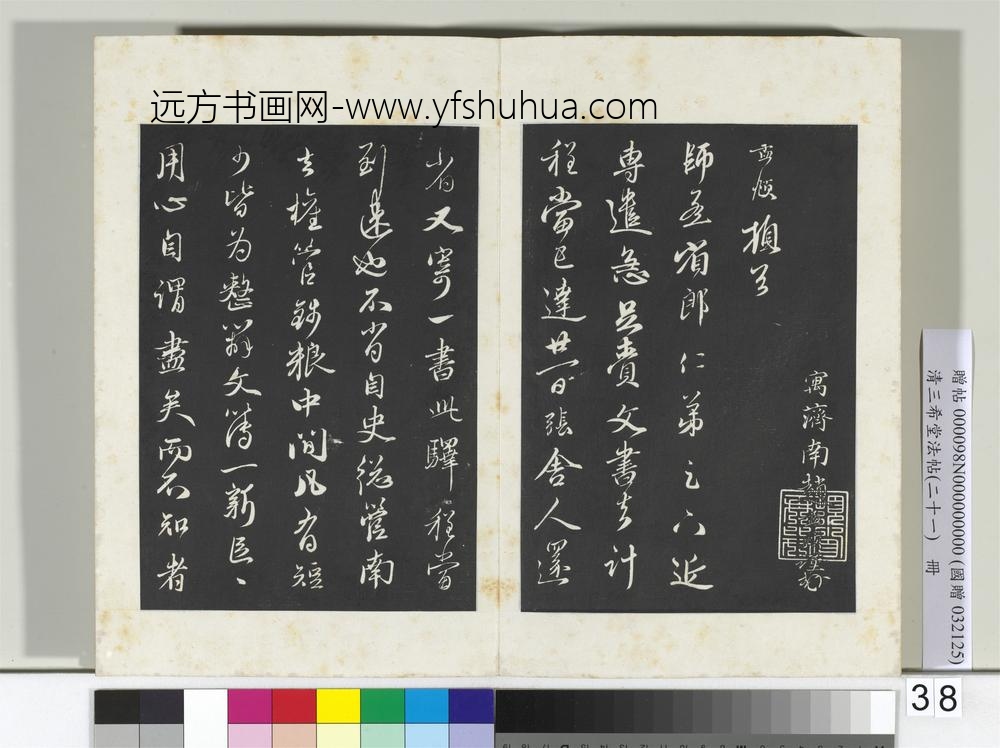 远方书画网-www.yfshuhua.com
孟頫頓首
師孟省郎仁弟之下近
專遣急足賫文書去計
程當已達廿一日張舍人還
省又寄一書此驛程當
到遲也不肖自史總管南
去權管錢粮中間凡有短
少皆為整辦文簿一新區〻
用心自謂盡矣而不知者
寓濟南趙
贈帖 000098N000000000 (國贈 032125)
清三希堂法帖(二十一) 冊
38